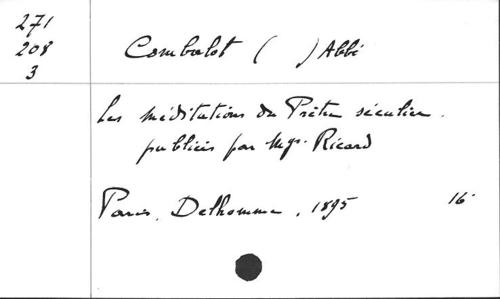 271
208
3
Combalot ( ) Abbé
Les méditations du Prêtre séculier.
publiées par Mgr. Ricard
Paris. Delhomme, 1895 16°